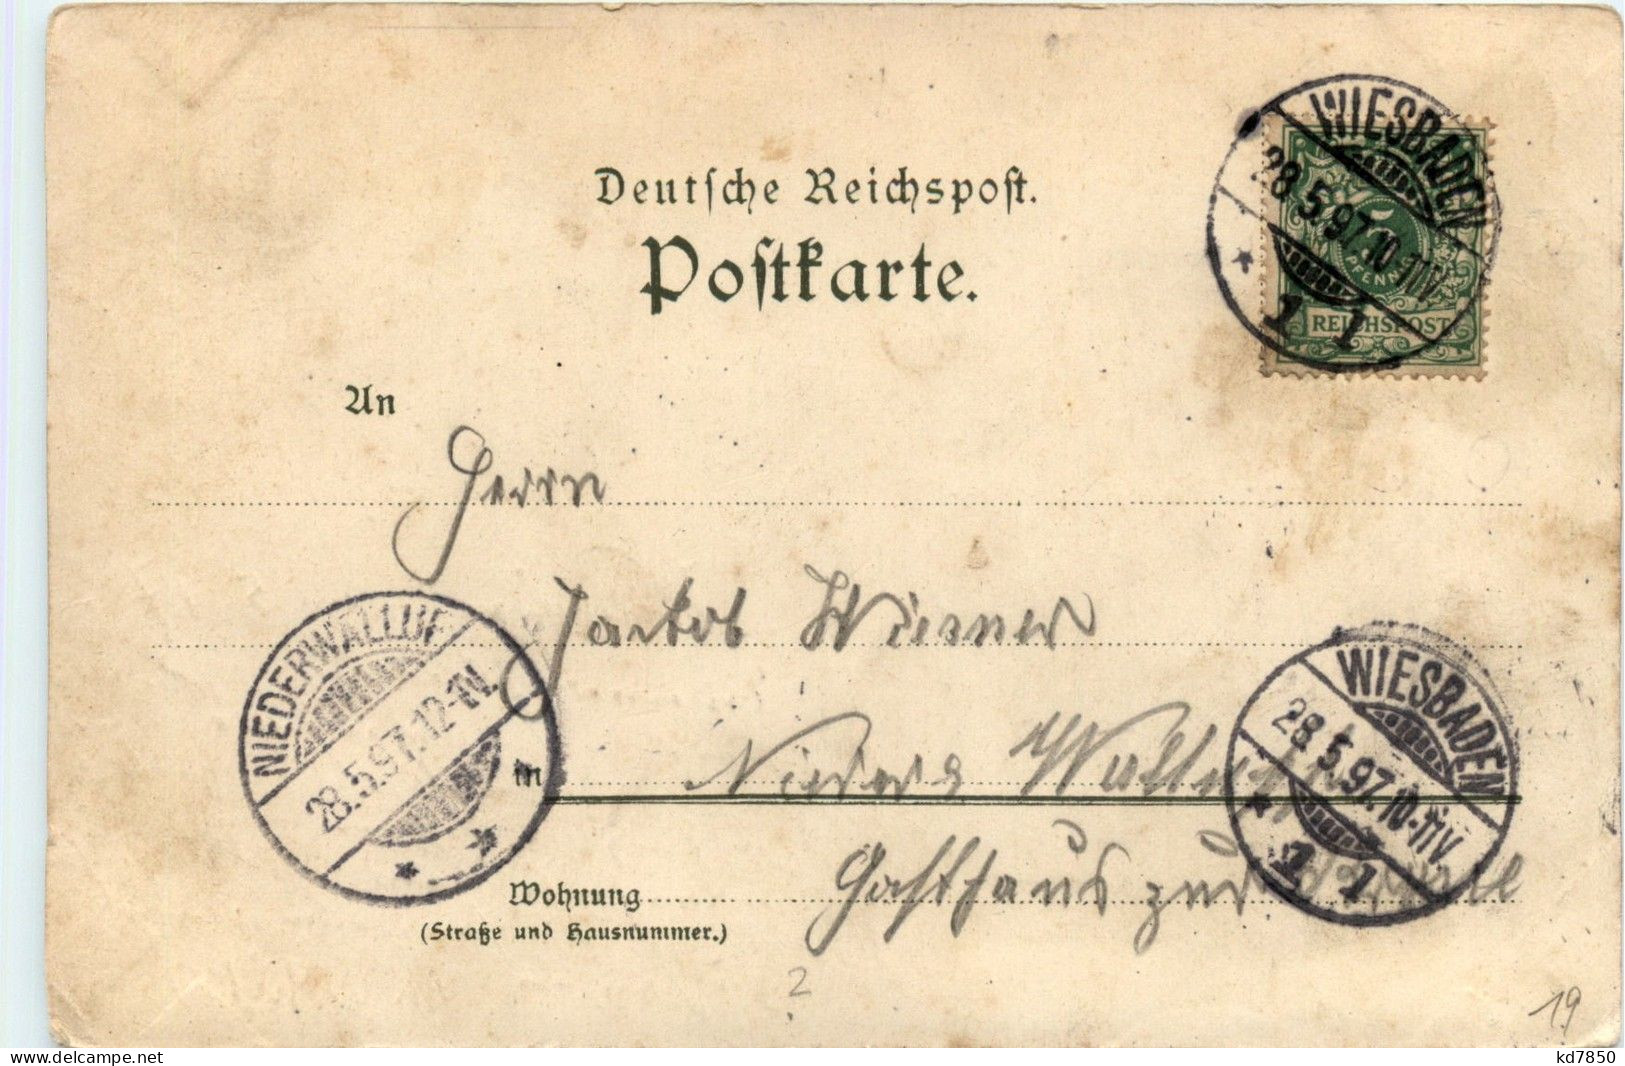 WIESBADEN
28.5.97.10-11V.
1 1
5
PFENNIG
REICHSPOST
Deutsche Reichspost.
Postkarte.
An
Herrn
Jakob Wiemer
NIEDERWALLUF
28.5.97.12-1N.
in Nieder Walluf
WIESBADEN
28.5.97.10-11V
1 1
Wohnung Gasthaus zur
(Straße und Hausnummer.)
2
19
delcampe.net
kd7850